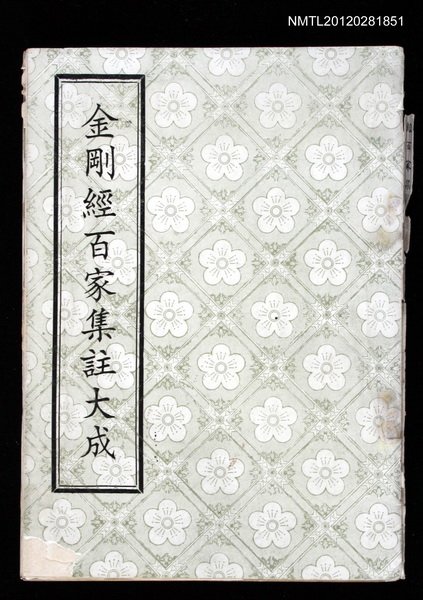 NMTL20120281851
金剛經百家集註大成